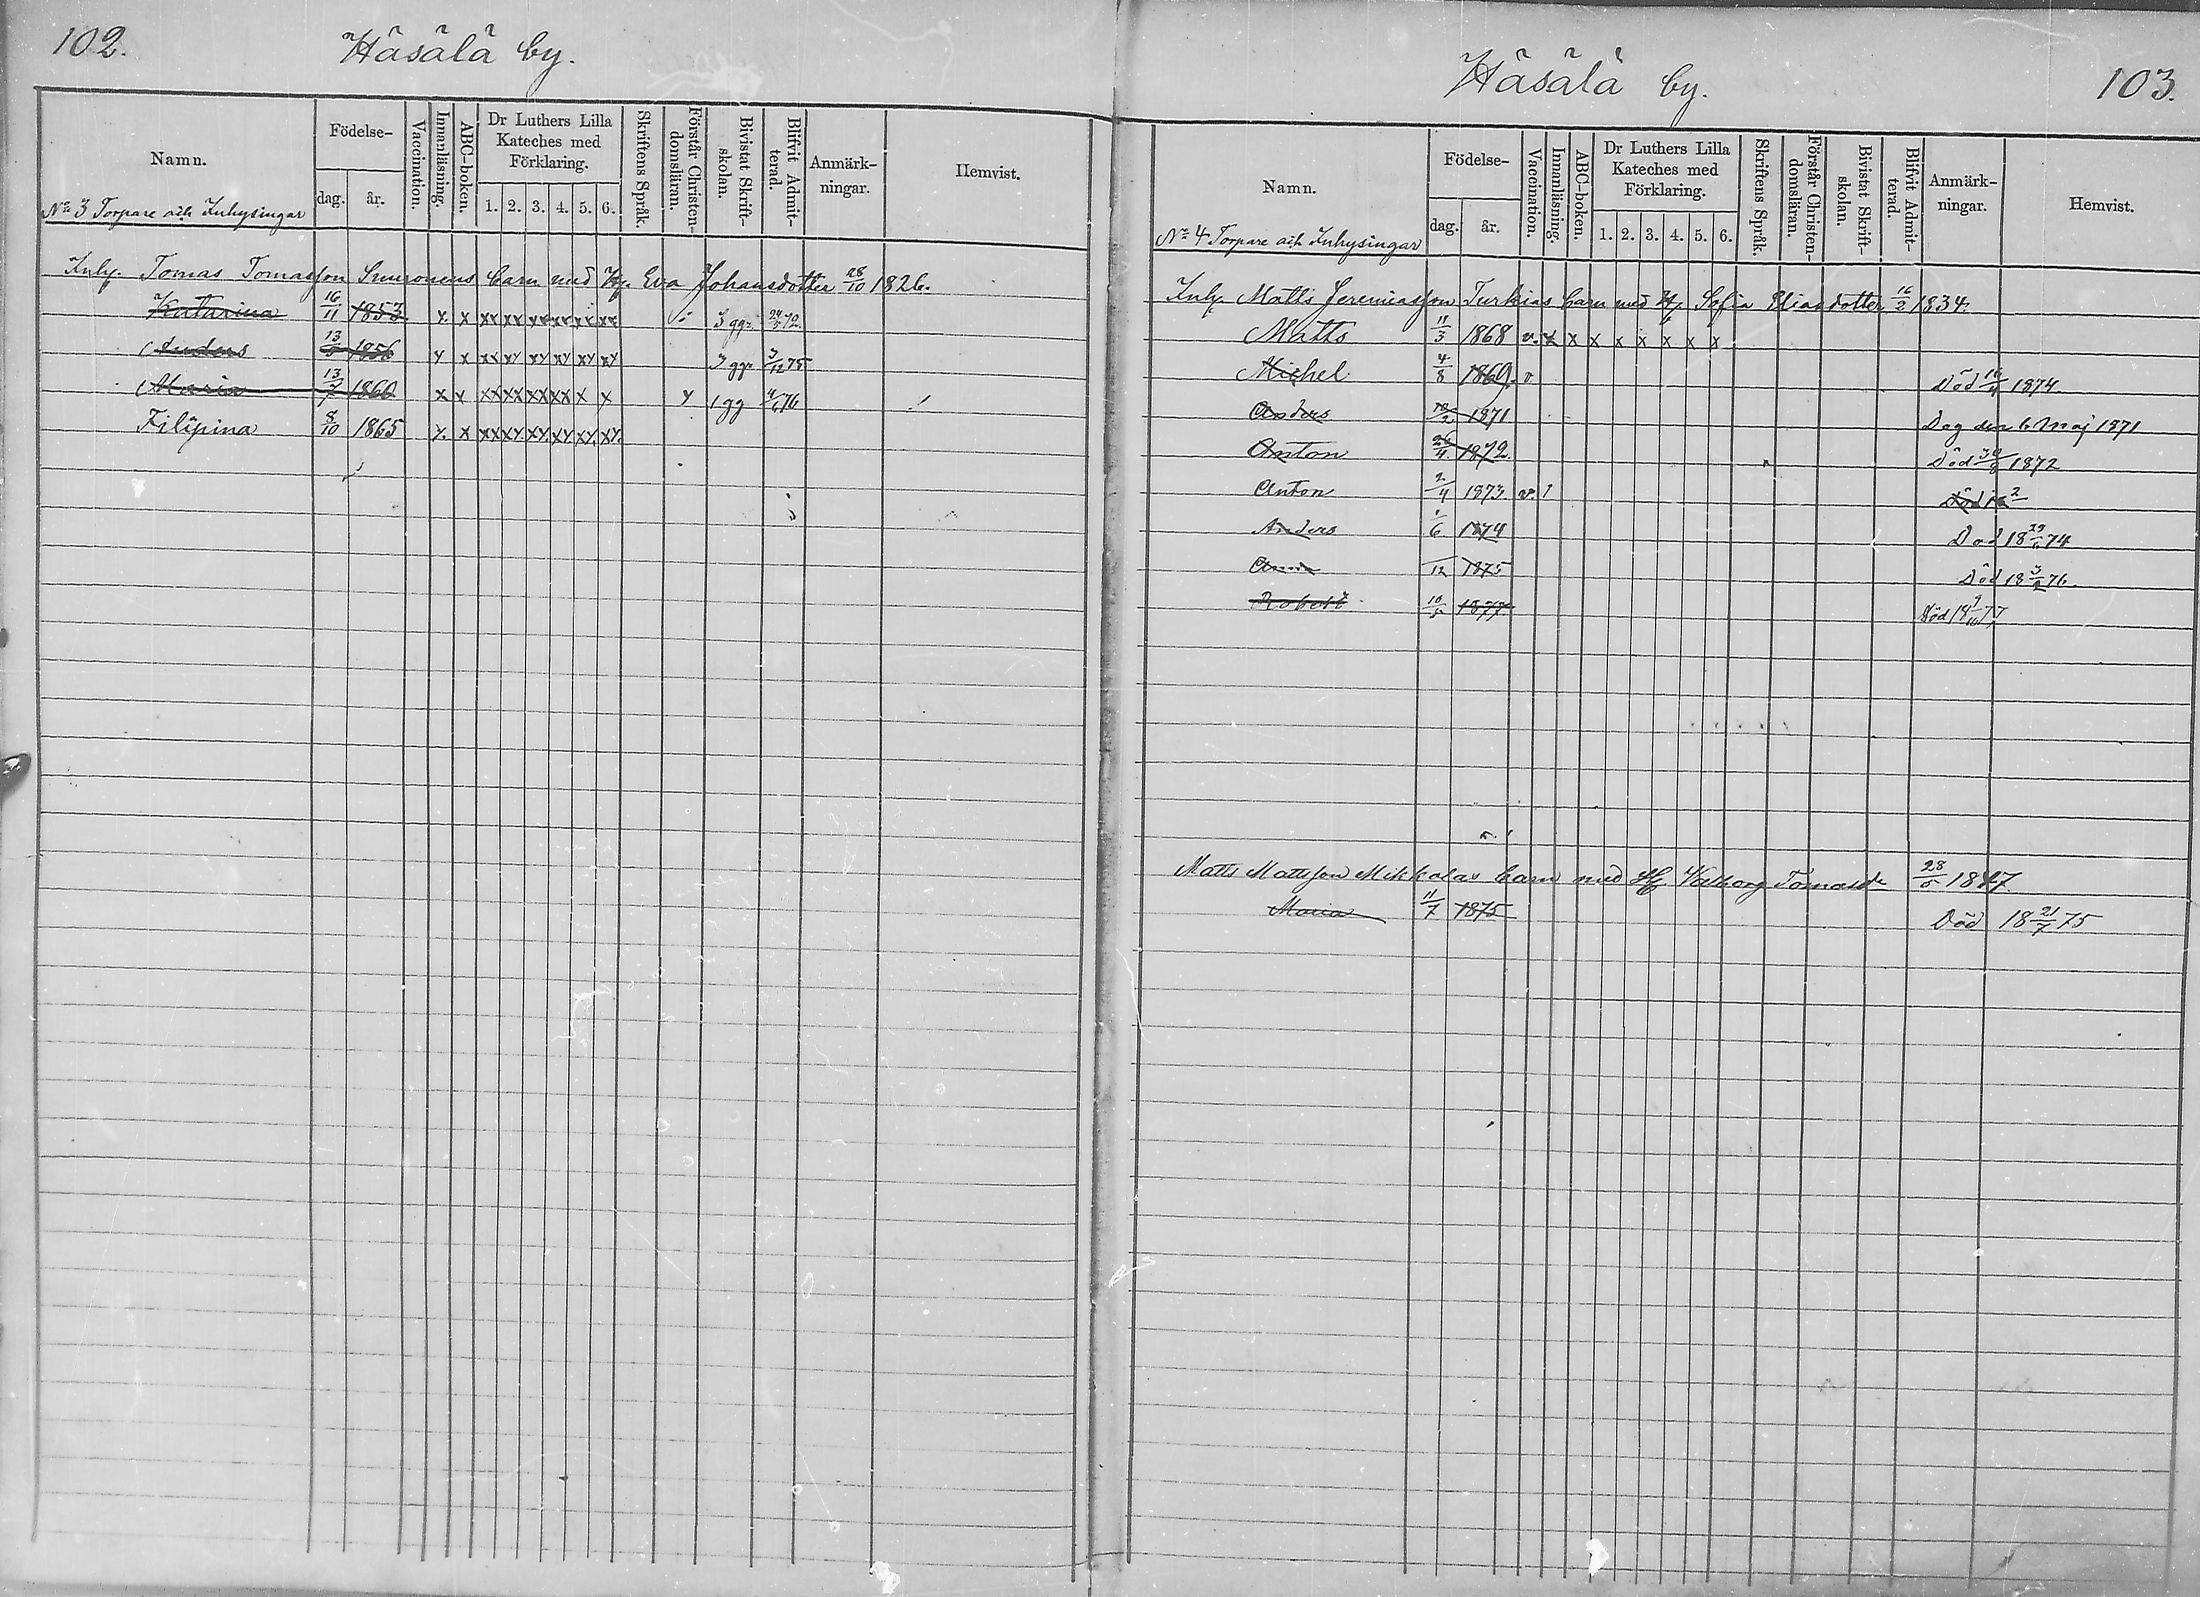 102.
Häsälä by.
Namn.
Födelse-
dag.
år.
Vaccination.
Innanläsning.
ABC-boken.
Dr Luthers Lilla Kateches med Förklaring.
1. 2. 3. 4. 5. 6.
Skriftens Språk.
Förstår Christen-domsläran.
Bivistat Skrift-skolan.
Blifvit Admit-terad.
Anmärk-ningar.
Hemvist.
No 3 Torpare och Inhysingar
Inhy. Tomas Tomasson Simonens barn med H. Eva Johansdotter 28/10 1826.
Katarina 16/11 1853 x x xx xx xx xx xx xx 3 ggr 24/5 72.
Anders 13/5 1856 x x xx xx xx xx xx xx 3 ggr 3/12 75
Maria 13/7 1860 x x xx xx xx xx x x x 1 gg 4/6 76
Filipina 8/10 1865 x x xx xx xx xx xx xx
Häsälä by.
103.
Namn.
Födelse-
dag.
år.
Vaccination.
Innanläsning.
ABC-boken.
Dr Luthers Lilla Kateches med Förklaring.
1. 2. 3. 4. 5. 6.
Skriftens Språk.
Förstår Christen-domsläran.
Bivistat Skrift-skolan.
Blifvit Admit-terad.
Anmärk-ningar.
Hemvist.
No 4 Torpare och Inhysingar
Inhy. Matts Jeremiasson Turkias barn med H. Sofia Eliasdotter 16/2 1834.
Matts 11/3 1868 v. x x x x x x x x
Michel 4/8 1869. v Död 1874.
Anders 1871 Dog den 6 Maj 1871
Anton 26/4 1872. Död 30/8 1872
Anton 2/4 1873 v. 1 Död
Anders 1/6 1874 Död 18 74
Anna /12 1875 Död 18 76.
Robert 10/5 1877 Död 18 9/10 77
Matts Mattsson Mikkolas barn med H. Valborg Tomasdr 28/5 1847.
Maria 11/7 1875 Död 18 21/7 75